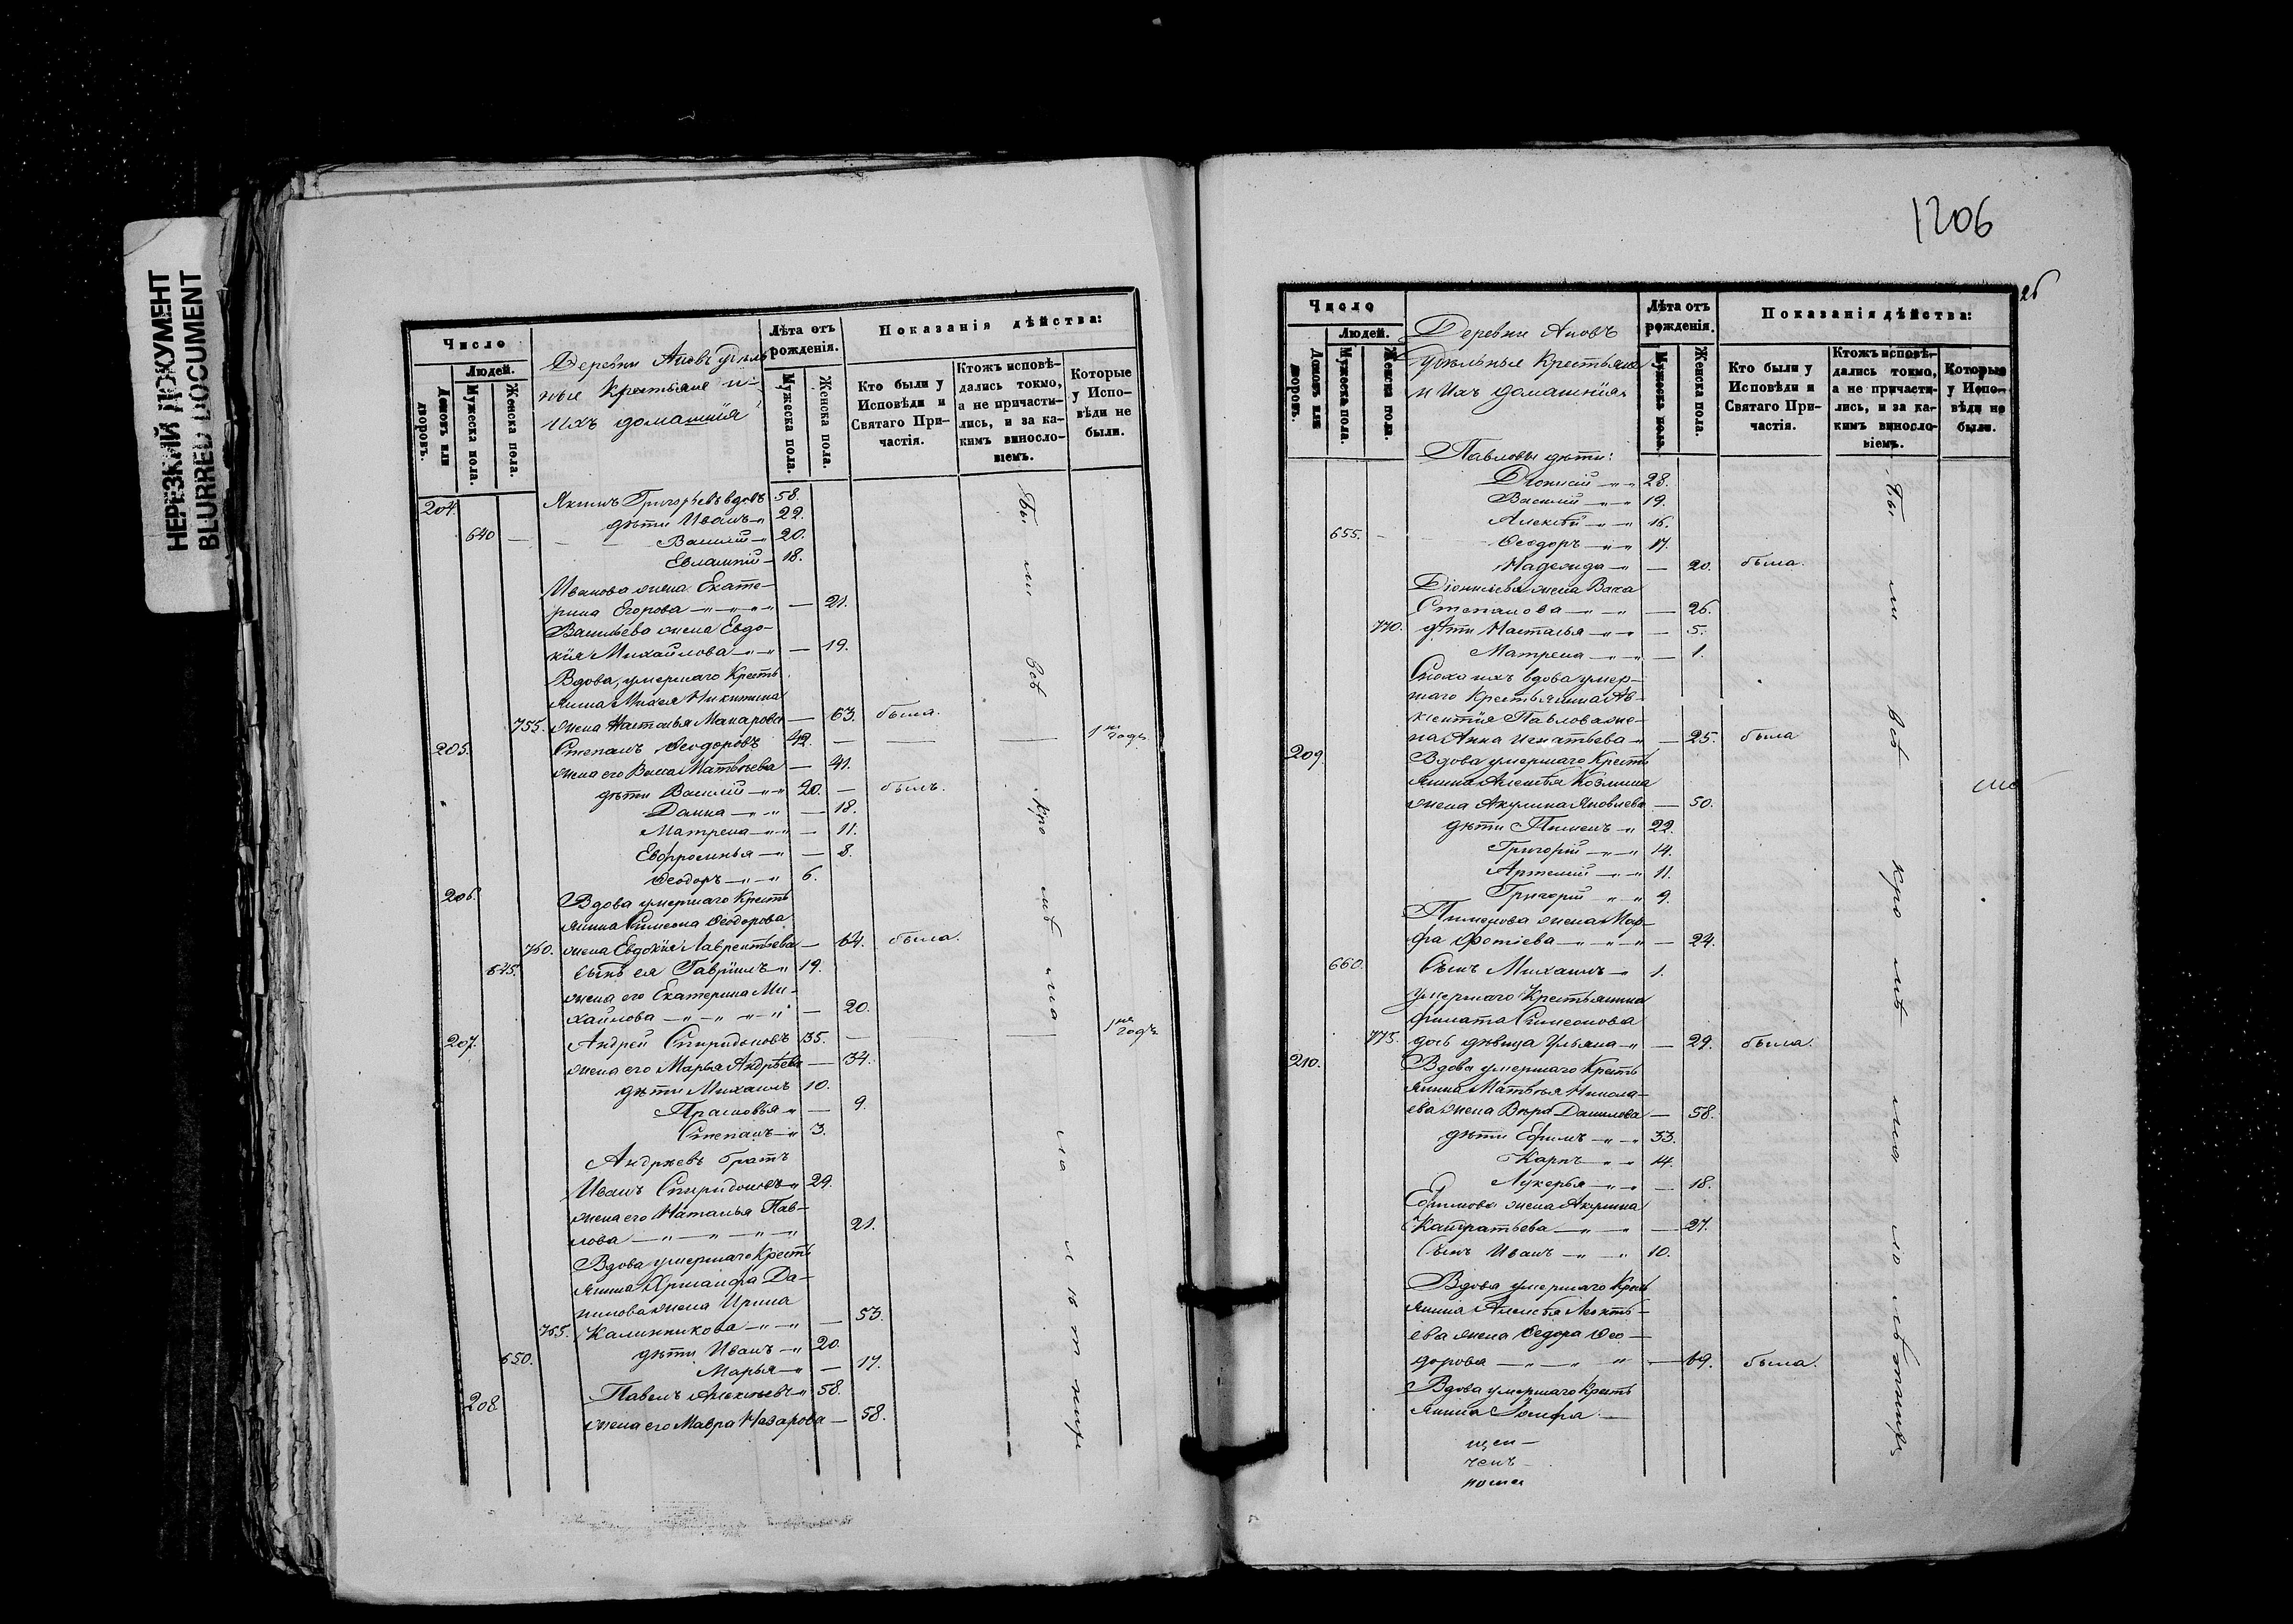 НЕРЕЗКИЙ ДОКУМЕНТ
BLURRED DOCUMENT
Число
Людей.
Домовъ или дворовъ.
Мужеска пола.
Женска пола.
Деревни Аковъ удѣль
ные Крестьяне и
ихъ домашнія
Лѣта отъ рожденія.
Мужеска пола.
Женска пола.
Показанія дѣйства:
Кто были у Исповѣди и Святаго Причастія.
Ктожъ исповѣдались токмо, а не причастились, и за какимъ винословіемъ.
Которые у Исповѣди не были.
204. Якимъ Григорьевъ вдовъ 58.
дѣти Иванъ 22.
640 Василій 20.
Евлампій 18.
Иванова жена Екате-
рина Егорова 21.
Васильева жена Евдо-
кія Михайлова 19.
Вдова, умершаго Кресть
янина Михея Никитина
755. жена Наталья Макарова 63. была.
205. Степанъ Ѳеодоровъ 42. 1й годъ
жена его Васса Матвѣева 41.
дѣти Василій 20. былъ.
Домна 18.
Матрена 11.
Евфросинья 8.
Ѳеодоръ 6.
206. Вдова умершаго Кресть
янина Симеона Ѳеодорова
760. жена Евдокія Лаврентьева 64. была.
645. сынъ ея Гавріилъ 19.
жена его Екатерина Ми-
хайлова 20.
207. Андрей Спиридоновъ 35. 1й годъ
жена его Марья Андрѣева 34.
дѣти Михаилъ 10.
Прасковья 9.
Степанъ 3.
Андреевъ братъ
Иванъ Спиридоновъ 29.
жена его Наталья Пав-
лова 21.
Вдова умершаго Кресть
янина Да-
нилова жена Ирина
765. Калинникова 53.
дѣти Иванъ 20.
650. Марья 17.
208 Павелъ Алексѣевъ 58.
жена его Мавра Назарова 58.
1206
26
Число
Людей.
Домовъ или дворовъ.
Мужеска пола.
Женска пола.
Деревни Аковъ
Удѣльные Крестьяне
и Ихъ домашнія
Лѣта отъ рожденія.
Мужеска пола.
Женска пола.
Показанія дѣйства:
Кто были у Исповѣди и Святаго Причастія.
Ктожъ исповѣдались токмо, а не причастились, и за какимъ винословіемъ.
Которые у Исповѣди не были.
Павловы дѣти:
Діонисій 28.
Василій 19.
Алексѣй 16.
655. Ѳеодоръ 17.
Надежда 20. была.
Діонисіева жена Васса
Степанова 26.
770. дѣти Наталья 5.
Матрена 1.
Сноха ихъ вдова умер-
шаго Крестьянина Ав-
ксентія Павлова же-
на Анна Игнатьева 25. была
209. Вдова умершаго Кресть
янина Алексѣя Козмина
жена Акулина Яковлева 50.
дѣти Пименъ 22.
Григорій 14.
Артемій 11.
Григорій 9.
Пименова жена Мар-
фа Фотіева 24.
660. Сынъ Михаилъ 1.
умершаго Крестьянина
Филата Симеонова
775. дочь дѣвица Ульяна 29. была.
210. Вдова умершаго Кресть
янина Матвѣя Никола-
ева жена Вѣра Данилова 58.
дѣти Ефимъ 33.
Карпъ 14.
Лукерья 18.
Ефимова жена Акулина
Кандратьева 27.
Сынъ Иванъ 10.
Вдова умершаго Кресть
янина Алексѣя Леонть-
ева жена Ѳедора Ѳео-
дорова 69. была.
Вдова умершаго Кресть
янина Іосифа